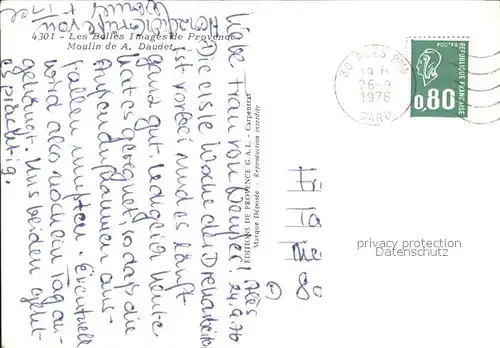 4301 - Les Belles Images de Provence
Moulin de A. Daudet
Alès
24.9.76
Liebe Frau von Demler!
Die erste Woche der Dreharbeiten
ist vorbei und es läuft
ganz gut. Lediglich heute
hat es geregnet, so daß die
Außenaufnahmen aus-
fallen mußten. Eventuell
wird also noch ein Tag an-
gehängt. Uns beiden geht
es prächtig.
Herzliche Grüße von
ÉDITIONS DE PROVENCE G.A.L. - Carpentras
Marque Déposée - Reproduction interdite
30 ALES PPAL
19 H
26-9
1976
GARD
POSTES
REPUBLIQUE FRANÇAISE
0,80
80
privacy protection
Datenschutz